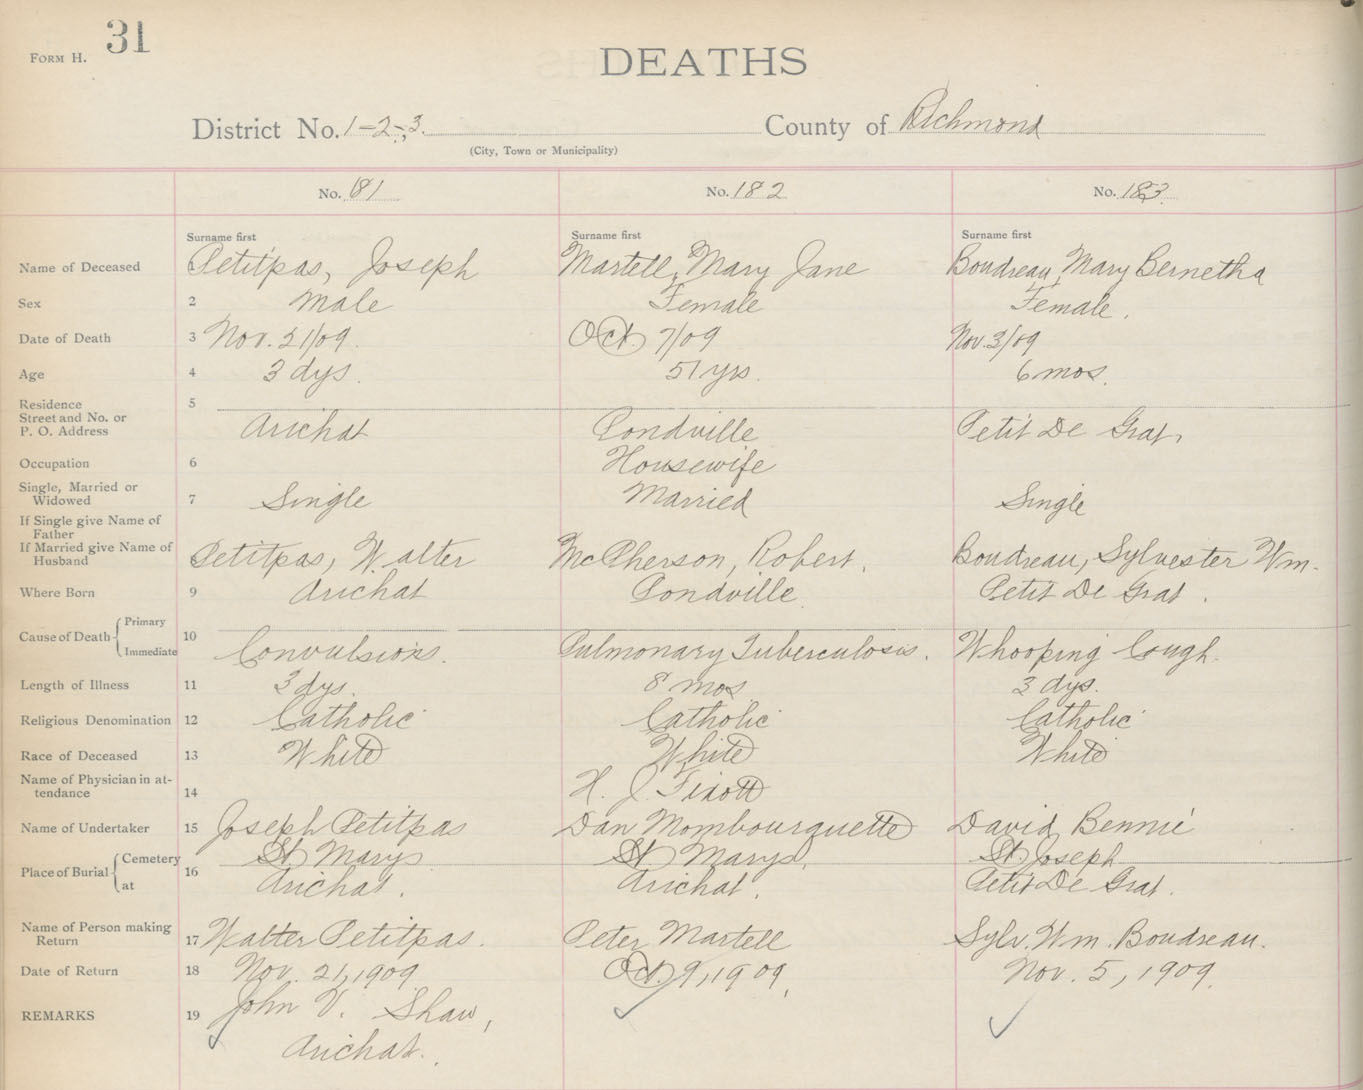 Form H. 31
DEATHS
District No. 1-2-,3. County of Richmond
(City, Town or Municipality)
No. 181 No. 182 No. 183
Surname first Surname first Surname first
Name of Deceased 1 Petitpas, Joseph Martell, Mary Jane Boudreau, Mary Bernetha
Sex 2 Male Female Female.
Date of Death 3 Nov. 21/09. Oct. 7/09 Nov. 3/09
Age 4 3 dys. 51 yrs. 6 mos.
Residence 5
Street and No. or
P. O. Address Arichat Pondville Petit De Grat,
Occupation 6 Housewife
Single, Married or
Widowed 7 Single Married Single
If Single give Name of
Father
If Married give Name of
Husband 8 Petitpas, Walter McPherson, Robert, Boudreau, Sylvester Wm.
Where Born 9 Arichat Pondville Petit De Grat.
Cause of Death Primary
10
Immediate Convulsions. Pulmonary Tuberculosis. Whooping Cough.
Length of Illness 11 3 dys. 8 mos 3 dys.
Religious Denomination 12 Catholic Catholic Catholic
Race of Deceased 13 White White White
Name of Physician in at-
tendance 14 H. J. Fixott
Name of Undertaker 15 Joseph Petitpas Dan Mombourquette David Bennie
Place of Burial Cemetery St Marys St Marys, St. Joseph
at 16 Arichat. Arichat. Petit De Grat.
Name of Person making
Return 17 Walter Petitpas. Peter Martell Sylv. Wm. Boudreau.
Date of Return 18 Nov. 21, 1909 Oct. 9, 1909, Nov. 5, 1909.
REMARKS 19 John V. Shaw,
Arichat.